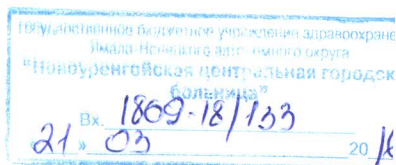 Государственное бюджетное учреждение здравоохране
Ямало-Ненецкого автономного округа
"Новоуренгойская центральная городск
больница"
Вх. 1869-18/133
21 » 03 20